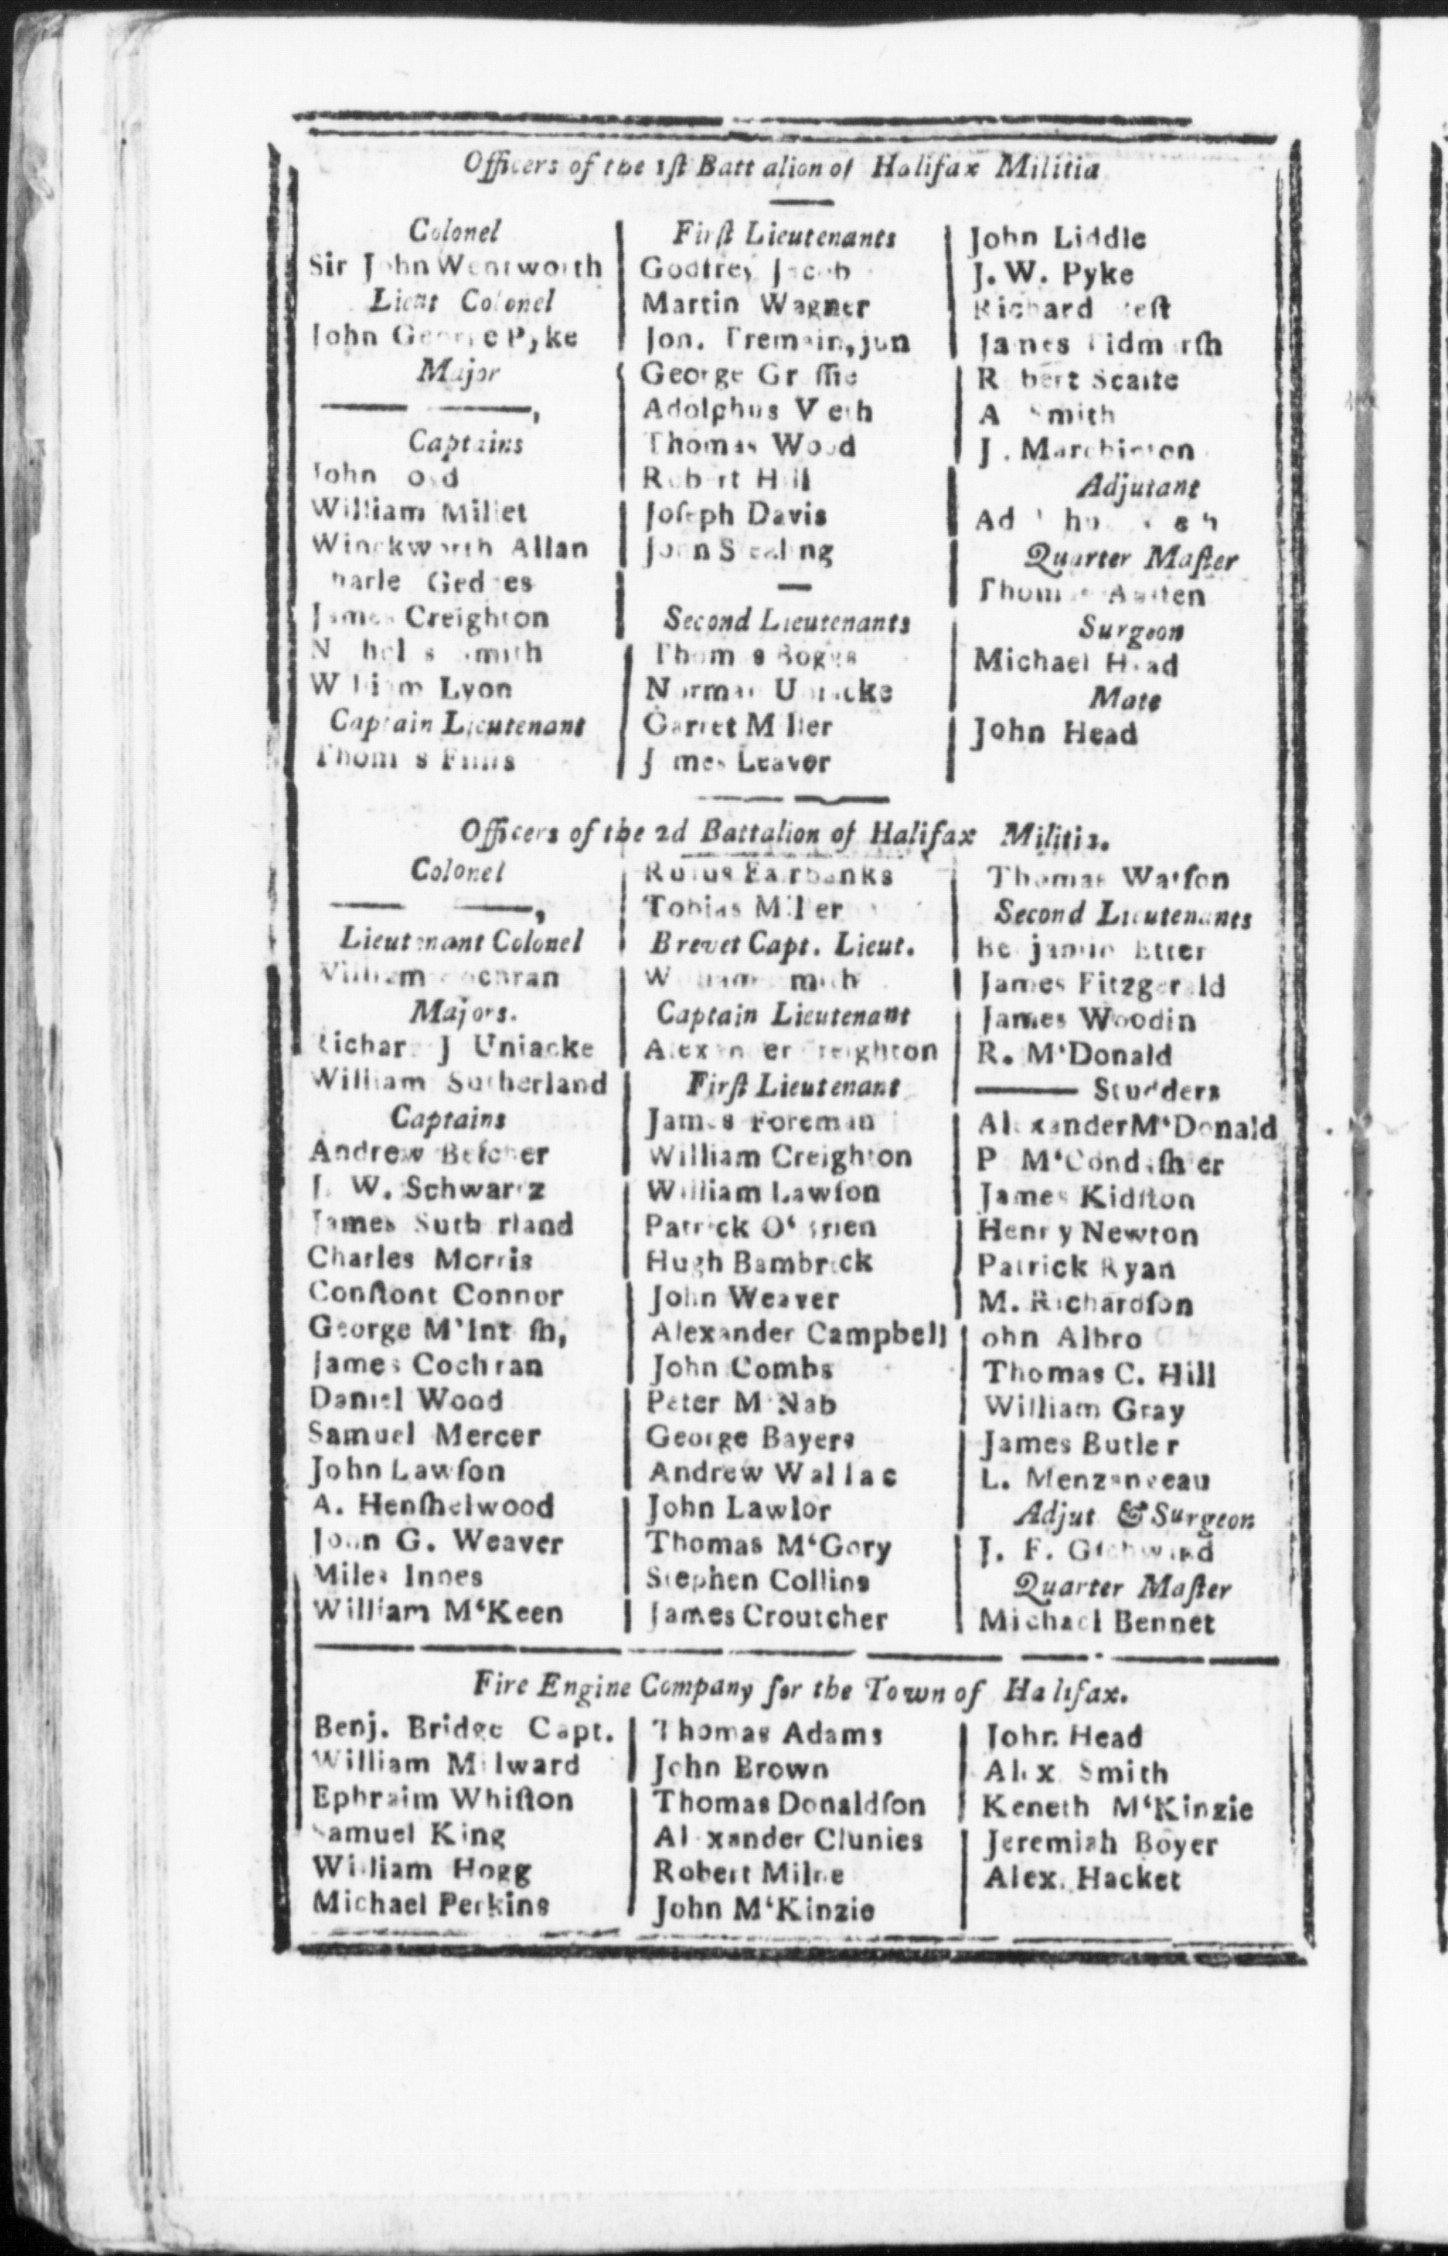 Officers of the 1ſt Battalion of Halifax Militia
Colonel
Sir John Wentworth
Lieut Colonel
John George Pyke
Major
Captains
John
William Millet
Winckworth Allan
Charles Geddes
James Creighton
Nicholas Smith
William Lyon
Captain Lieutenant
Thomas Fillis
Firſt Lieutenants
Godfrey Jacob
Martin Wagner
Jon. Tremain, jun
George Graſſie
Adolphus Vieth
Thomas Wood
Robert Hill
Joſeph Davis
John Stealing
Second Lieutenants
Thomas Boggs
Norman Uniacke
Garret Miller
James Leaver
John Liddle
J. W. Pyke
Richard
James Tidmarſh
Robert Scaife
A Smith
J. Marchinton
Adjutant
Quarter Maſter
Thomas Auſten
Surgeon
Michael Head
Mate
John Head
Officers of the 2d Battalion of Halifax Militia.
Colonel
Lieutenant Colonel
William Cochran
Majors.
Richard J Uniacke
William Sutherland
Captains
Andrew Belcher
J. W. Schwartz
James Sutherland
Charles Morris
Conſtont Connor
George M'Intoſh,
James Cochran
Daniel Wood
Samuel Mercer
John Lawſon
A. Henſhelwood
John G. Weaver
Miles Innes
William M‘Keen
Rufus Fairbanks
Tobias Miller
Brevet Capt. Lieut.
William Smith
Captain Lieutenant
Alexander Creighton
Firſt Lieutenant
James Foreman
William Creighton
William Lawſon
Patrick O‘Brien
Hugh Bambrick
John Weaver
Alexander Campbell
John Combs
Peter M‘Nab
George Bayers
Andrew Wallac
John Lawlor
Thomas M‘Gory
Stephen Collins
James Croutcher
Thomas Watſon
Second Lieutenants
Benjamin Etter
James Fitzgerald
James Woodin
R. M‘Donald
——— Studders
Alexander M‘Donald
P M‘Condiſhier
James Kidſton
Henry Newton
Patrick Ryan
M. Richardſon
ohn Albro
Thomas C. Hill
William Gray
James Butler
L. Menzangeau
Adjut & Surgeon
J. F. Gſchwind
Quarter Maſter
Michael Bennet
Fire Engine Company for the Town of Halifax.
Benj. Bridge Capt.
William Milward
Ephraim Whiſton
Samuel King
William Hogg
Michael Perkins
Thomas Adams
John Brown
Thomas Donaldſon
Alexander Clunies
Robert Milne
John M‘Kinzie
John Head
Alex Smith
Keneth M‘Kinzie
Jeremiah Boyer
Alex. Hacket